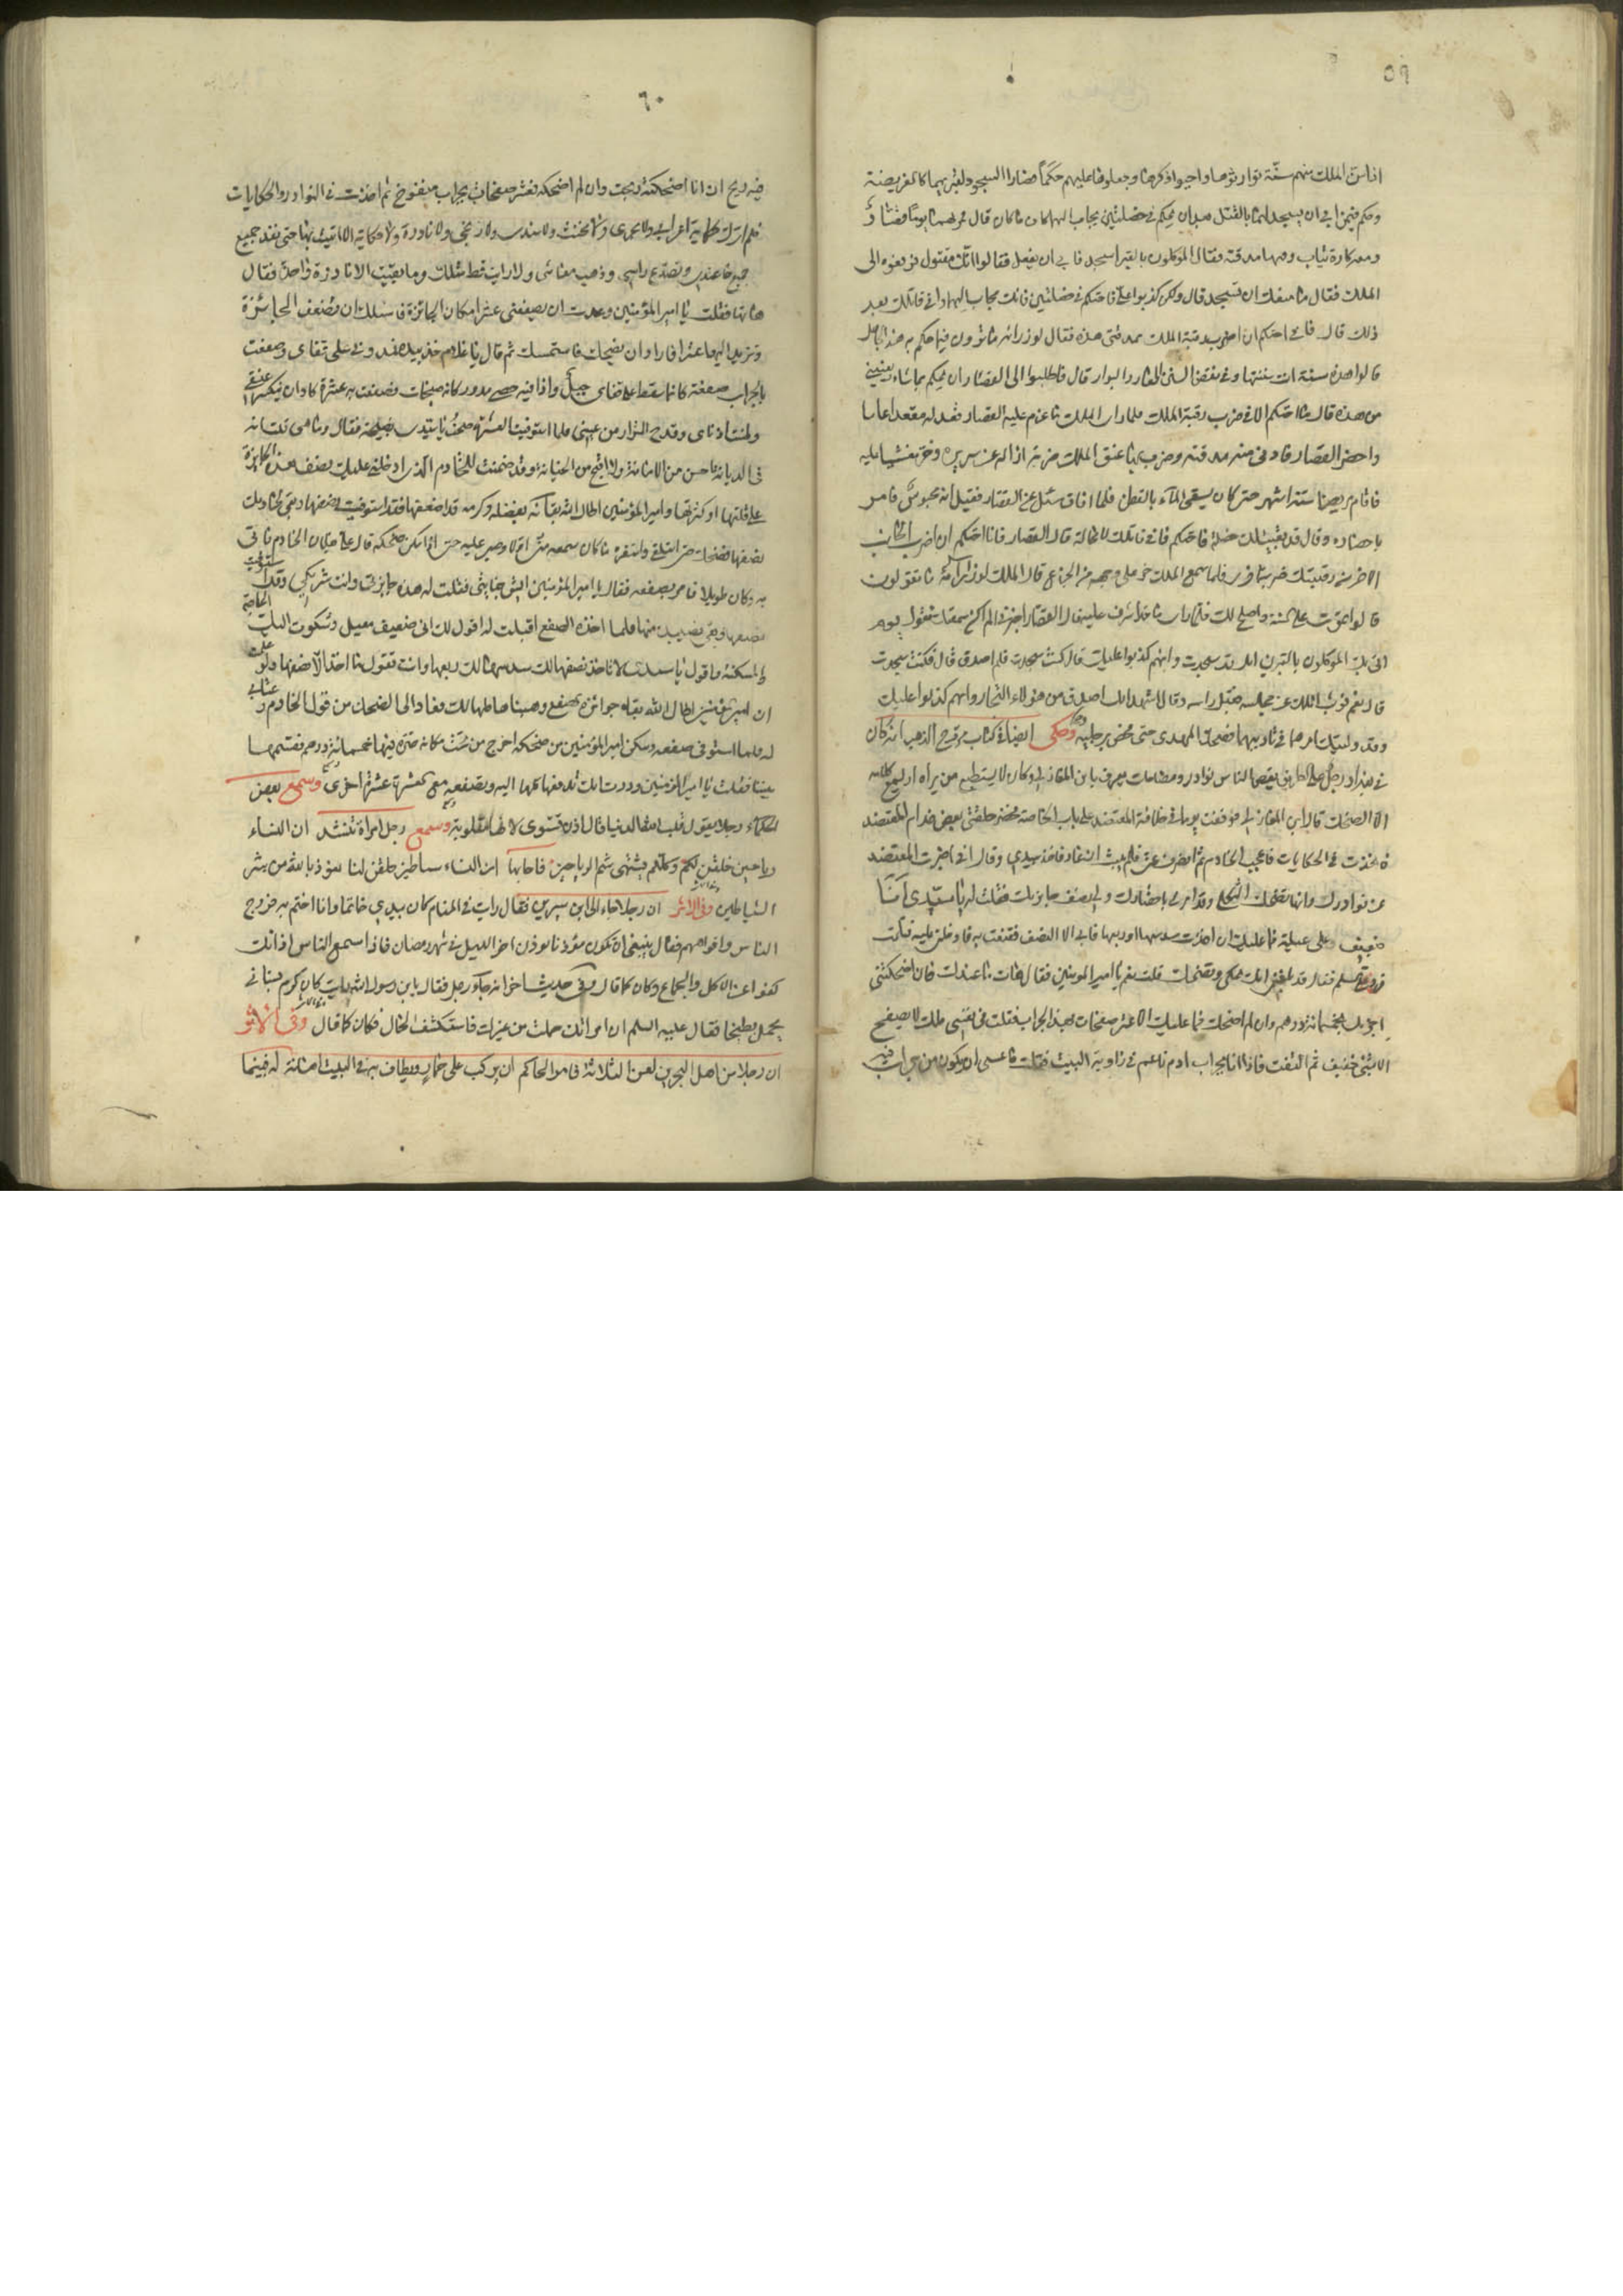 ٥٩
اناس الملك منهم ستة
وحكم فيمن ابى ان يسجد لهما بالقتل بعد ان يحكم في خصلتين يجاب اليهما كائنا ما كان قال فمر بهما يوما قصار
ومعه كارة ثياب ومعها مدقته فقال الموكلون بالقبر اسجد فابى ان يفعل فقالوا انك مقتول فرفعوه الى
الملك فقال ما منعك ان تسجد قال ولكن كذبوا علي فاحتكم في خصلتين فانك مجاب اليهما واني قاتلك بعد
ذلك قال فاني احتكم ان اضرب رقبة الملك بمدقتي هذه فقال لوزرائه ما ترون فيما حكم به هذا الجاهل
قالوا هذه سنة انت سننتها وفي نقض السنن العار والبوار قال فاطلبوا الى القصار ان يحكم بما شاء ويعفيني
من هذه قال ما احتكم الا في ضرب رقبة الملك فلما راى الملك ما عزم عليه القصار فقعد له مقعدا عاما
واحضر القصار فادنى منه مدقته وضرب بها عنق الملك ضربة ازاله عن سريره وخر مغشيا عليه
فاقام مريضا ستة اشهر حتى كان يسقى المآء بالقطن فلما افاق سئل عن القصار فقيل انه محبوس فامر
باحضاره وقال قد بقيت لك خصلة فاحتكم فاني قاتلك لا محالة قال القصار فانا احتكم ان اضرب الجانب
الاخر من رقبتك ضربة اخرى فلما سمع الملك خر على وجهه من الجزع قال الملك لوزرائه ما تقولون
قالوا تموت على السنة واصلح لك
انى بك الموكلون بالقبرين انك قد سجدت وانهم كذبوا عليك قال كنت سجدت فلم اصدق قال فكنت سجدت
قال نعم فوثب الملك عن مجلسه فقبل راسه وقال اشهد انك اصدق من هؤلاء الفجار وانهم كذبوا عليك
وقد وليتك امرهما في تاديبهما فضحك المهدى حتى فحص برجليه وحكى ايضا في كتاب مروج الذهب انه كان
في بغداد رجل على الطريق يقص على الناس نوادر ومضحكات يعرف بابن المغازلي وكان لا يستطيع من يراه او يسمع كلامه
الا الضحك قال ابن المغازلي فوقفت يوما في خلافة المعتضد على باب الخاصة فحضر حلقتي بعض خدام المعتضد
فاخذت في الحكايات فاعجب الخادم ثم انصرف عني فلم يلبث ان عاد فاخذ بيدي وقال اني اخبرت المعتضد
عن نوادرك وانها تضحك الثكلى وقد امر لي باحضارك ولي نصف جائزتك فقلت له يا سيدي انا
ضعيف وعلي عيلة فما عليك ان اخذت سدسها او ربعها فابى الا النصف فقنعت به فادخلني عليه
فسلم فقال قد بلغني انك تحكي وتضحك قلت نعم يا امير المومنين فقال هات ما عندك فان اضحكتني
اجزتك بخمسمائة درهم وان لم اضحك فما عليك الا عشر صفعات بهذا الجراب فقلت في نفسي ملك لا يصفع
الا بشئ خفيف ثم التفت فاذا انا بجراب ادم ناعم في زاوية البيت فقلت ما عسى ان يكون من جراب فيه
٦٠
فيه ريح ان انا اضحكته ربحت وان لم اضحكه فعشر صفعات بجراب منفوخ ثم اخذت في النوادر والحكايات
فلم اترك حكاية اعرابي ولا نحوى ولا مخنث ولا سندى ولا زنجى ولا نادرة ولا حكاية الا اتيت بها حتى نفد جميع
جميع ما عندي وتصدع راسي وذهب معاشى ولا رايت قط مثلك وما بقيت الا نادرة واحدة فقال
هاتها فقلت يا امير المؤمنين وعدت ان تصفعني عشرا مكان الجائزة فاسئلك ان تضعف الجائزة
وتزيد اليها عشرا فاراد ان يضحك فاستمسك ثم قال يا غلام خذ بيده فمدوني على قفاى وصفعت
بالجراب صفعة كانما سقط على قفاى جبل واذا فيه حصى مدور كانه صنجات فصفعت به عشرة كاد ان ينكسر عنقي
وطنت اذناى وقدح الشرار من عيني فلما استوفيت العشرة صحت يا سيدى نصيحة فقال وما هي قلت انه
في الديانة احسن من الامانة ولا اقبح من الخيانة وقد ضمنت للخادم الذي ادخلني عليك نصف هذه الجايزة
على قلتها او كثرتها وامير المؤمنين اطال الله بقائه بفضله وكرمه قد اضعفها فقد استوفيت نصفها وبقي لخادمك
نصفها فضحك حتى استلقى واستفزه ما كان سمعه مني اولا وصبر عليه حتى اذا سكن ضحكه قال علي بفلان الخادم فاتى
به وكان طويلا فامر بصفعه فقال يا امير المؤمنين ايش جنايتي فقلت له هذه جايزتي وانت شريكي وقد استوفيت
نصفها وبقي نصيبك منها فلما اخذه الصفع اقبلت له اقول لك اني ضعيف معيل وشكوت اليك الحاجة
والمسكنة واقول يا سيدي لا تاخذ نصفها لك سدسها لك ربعها وانت تقول ما اخذ الا نصفها ولو علمت
ان امير المؤمنين اطال الله بقاه جوائزه صفع وهبتها كلها لك فعاد الى الضحك من قول الخادم وعتابي
له فلما استوفى صفعه وسكن امير المؤمنين من ضحكه اخرج من تحت تكائه صرة فيها خمسمائة درهم فقسمها
بيننا فقلت يا امير المؤمنين وددت انك تدفعها كلها اليه وتصفعه مع العشرة عشرة اخرى وسمع بعض
الحكماء رجلا يقول قلب الله الدنيا قال اذن تستوى لانها مقلوبة وسمع رجل امراة تنشد ان النساء
رياحين خلقن لكم وكلكم يشتهى شم الرياحين فاجابها ان النساء شياطين خلقن لنا نعوذ بالله من شر
الشياطين وفي الاثر ان رجلا جاء الى ابن سيرين فقال رايت في المنام كان بيدي خاتما وانا اختم به فروج
الناس وافواههم فقال ينبغي ان تكون مؤذنا تؤذن اخر الليل في شهر رمضان فاذا سمع الناس اذانك
كفوا عن الاكل والجماع وكان كما قال وفي حديث اخر انه جآءه رجل فقال يابن رسول الله رايت كان كرم بستاني
يحمل بطيخا فقال عليه السلم ان امراتك حملت من غيرك فاستكشف الحال فكان كما قال وفى الاثر
ان رجلا من اهل البحرين لعن الثلاثة فامر الحاكم ان يركب على حمار ويطاف به في البلد اهانة له فبينما